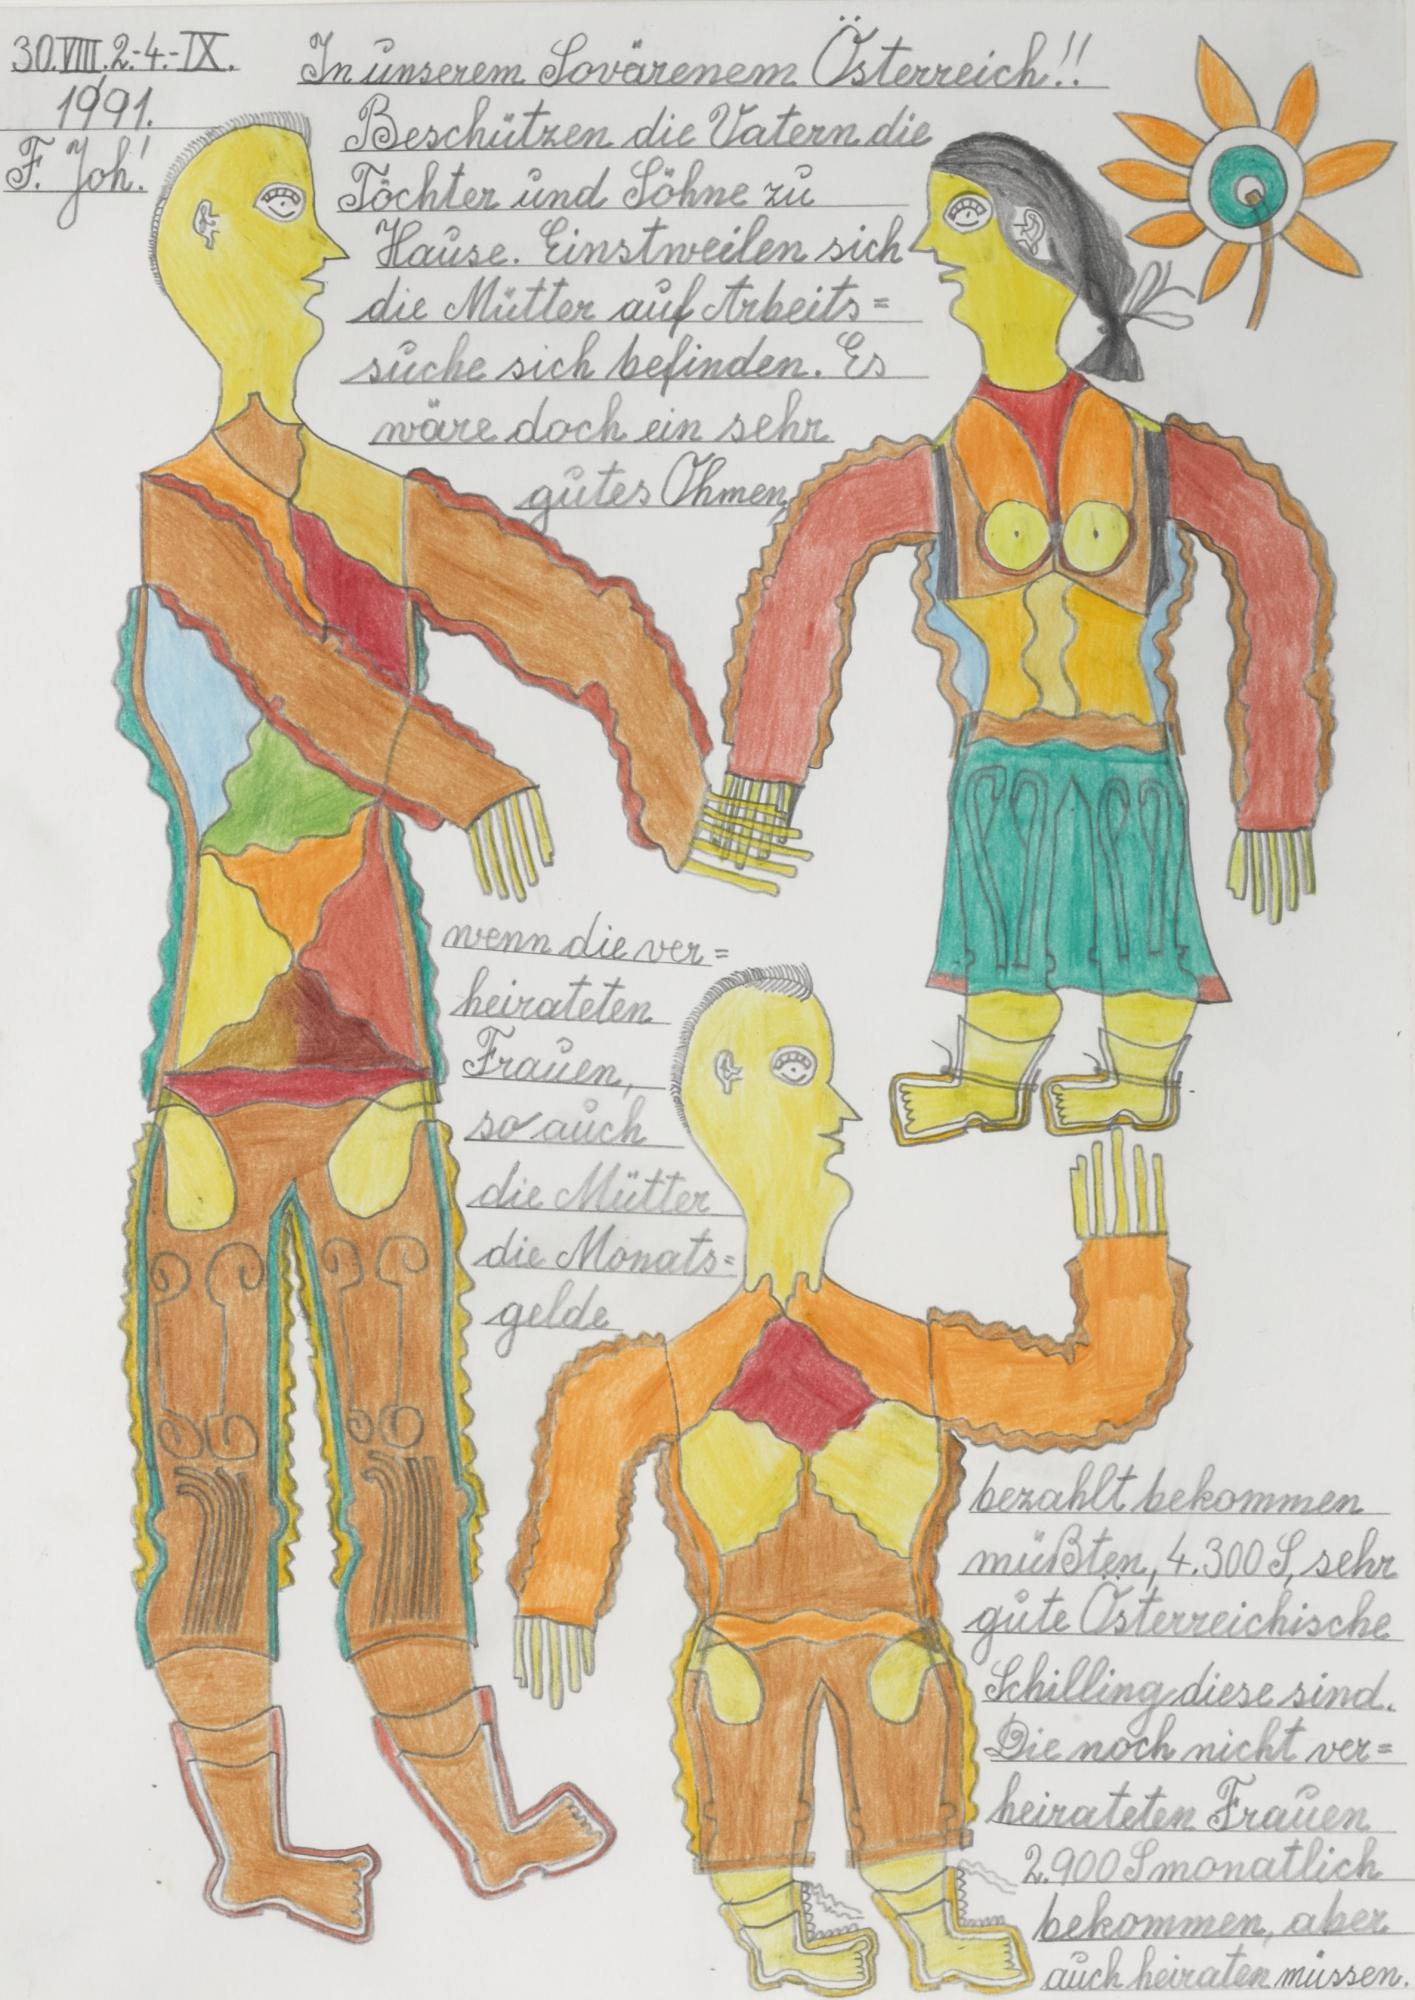 30.VIII.2.-4.-IX.
1991.
F. Joh!
In unserem Sovärenem Österreich!!
Beschützen die Vatern die
Töchter und Söhne zu
Hause. Einstweilen sich
die Mütter auf Arbeits=
suche sich befinden. Es
wäre doch ein sehr
gutes Ohmen,
wenn die ver=
heirateten
Frauen,
so auch
die Mütter
die Monats=
gelde
bezahlt bekommen
müßten, 4.300 S, sehr
gute Österreichische
Schilling diese sind.
Die noch nicht ver=
heirateten Frauen
2.900 S monatlich
bekommen, aber
auch heiraten müssen.